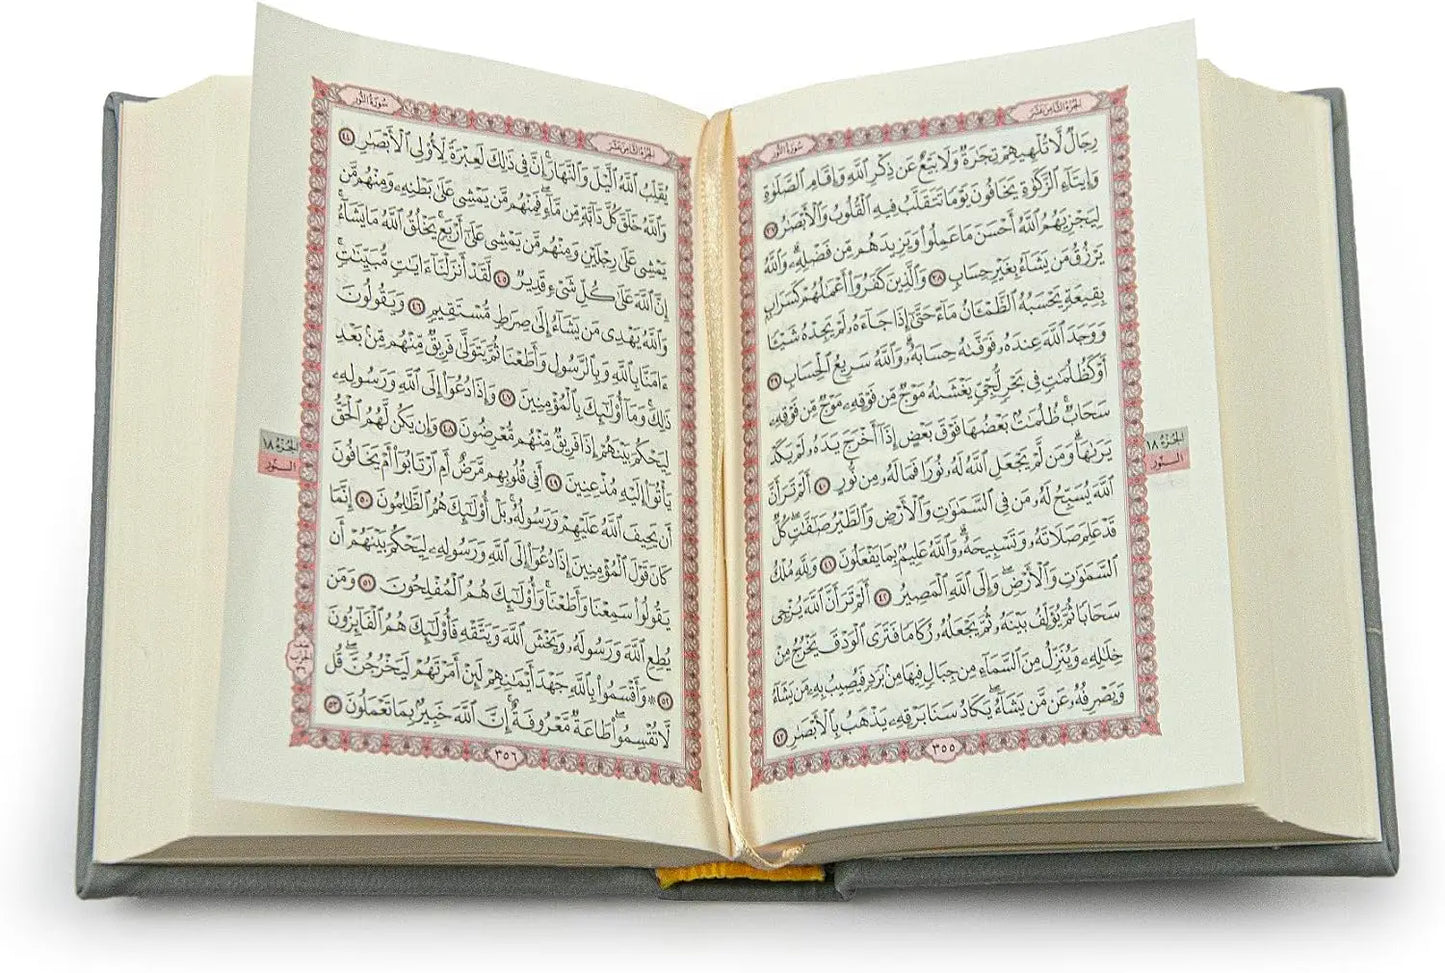 الجزء الثامن عشر
سورة النور
رِجَالٌ لَّا تُلْهِيهِمْ تِجَٰرَةٌ وَلَا بَيْعٌ عَن ذِكْرِ ٱللَّهِ وَإِقَامِ ٱلصَّلَوٰةِ
وَإِيتَآءِ ٱلزَّكَوٰةِ يَخَافُونَ يَوْمًا تَتَقَلَّبُ فِيهِ ٱلْقُلُوبُ وَٱلْأَبْصَٰرُ ٣٧
لِيَجْزِيَهُمُ ٱللَّهُ أَحْسَنَ مَا عَمِلُوا۟ وَيَزِيدَهُم مِّن فَضْلِهِۦ ۗ وَٱللَّهُ
يَرْزُقُ مَن يَشَآءُ بِغَيْرِ حِسَابٍ ٣٨ وَٱلَّذِينَ كَفَرُوٓا۟ أَعْمَٰلُهُمْ كَسَرَابٍۭ
بِقِيعَةٍ يَحْسَبُهُ ٱلظَّمْـَٔانُ مَآءً حَتَّىٰٓ إِذَا جَآءَهُۥ لَمْ يَجِدْهُ شَيْـًٔا
وَوَجَدَ ٱللَّهَ عِندَهُۥ فَوَفَّىٰهُ حِسَابَهُۥ ۗ وَٱللَّهُ سَرِيعُ ٱلْحِسَابِ ٣٩
أَوْ كَظُلُمَٰتٍ فِى بَحْرٍ لُّجِّىٍّ يَغْشَىٰهُ مَوْجٌ مِّن فَوْقِهِۦ مَوْجٌ مِّن فَوْقِهِۦ
سَحَابٌ ۚ ظُلُمَٰتٌۢ بَعْضُهَا فَوْقَ بَعْضٍ إِذَآ أَخْرَجَ يَدَهُۥ لَمْ يَكَدْ
يَرَىٰهَا ۗ وَمَن لَّمْ يَجْعَلِ ٱللَّهُ لَهُۥ نُورًا فَمَا لَهُۥ مِن نُّورٍ ٤٠ أَلَمْ تَرَ أَنَّ
ٱللَّهَ يُسَبِّحُ لَهُۥ مَن فِى ٱلسَّمَٰوَٰتِ وَٱلْأَرْضِ وَٱلطَّيْرُ صَٰٓفَّٰتٍ ۖ كُلٌّ
قَدْ عَلِمَ صَلَاتَهُۥ وَتَسْبِيحَهُۥ ۗ وَٱللَّهُ عَلِيمٌۢ بِمَا يَفْعَلُونَ ٤١ وَلِلَّهِ مُلْكُ
ٱلسَّمَٰوَٰتِ وَٱلْأَرْضِ ۖ وَإِلَى ٱللَّهِ ٱلْمَصِيرُ ٤٢ أَلَمْ تَرَ أَنَّ ٱللَّهَ يُزْجِى
سَحَابًا ثُمَّ يُؤَلِّفُ بَيْنَهُۥ ثُمَّ يَجْعَلُهُۥ رُكَامًا فَتَرَى ٱلْوَدْقَ يَخْرُجُ مِنْ
خِلَٰلِهِۦ وَيُنَزِّلُ مِنَ ٱلسَّمَآءِ مِن جِبَالٍ فِيهَا مِنۢ بَرَدٍ فَيُصِيبُ بِهِۦ مَن يَشَآءُ
وَيَصْرِفُهُۥ عَن مَّن يَشَآءُ ۖ يَكَادُ سَنَا بَرْقِهِۦ يَذْهَبُ بِٱلْأَبْصَٰرِ ٤٣
٣٥٥
الجزء ١٨
النور
الجزء الثامن عشر
سورة النور
يُقَلِّبُ ٱللَّهُ ٱلَّيْلَ وَٱلنَّهَارَ ۚ إِنَّ فِى ذَٰلِكَ لَعِبْرَةً لِّأُو۟لِى ٱلْأَبْصَٰرِ ٤٤
وَٱللَّهُ خَلَقَ كُلَّ دَآبَّةٍ مِّن مَّآءٍ ۖ فَمِنْهُم مَّن يَمْشِى عَلَىٰ بَطْنِهِۦ وَمِنْهُم مَّن
يَمْشِى عَلَىٰ رِجْلَيْنِ وَمِنْهُم مَّن يَمْشِى عَلَىٰٓ أَرْبَعٍ ۚ يَخْلُقُ ٱللَّهُ مَا يَشَآءُ ۚ
إِنَّ ٱللَّهَ عَلَىٰ كُلِّ شَىْءٍ قَدِيرٌ ٤٥ لَّقَدْ أَنزَلْنَآ ءَايَٰتٍ مُّبَيِّنَٰتٍ ۚ
وَٱللَّهُ يَهْدِى مَن يَشَآءُ إِلَىٰ صِرَٰطٍ مُّسْتَقِيمٍ ٤٦ وَيَقُولُونَ
ءَامَنَّا بِٱللَّهِ وَبِٱلرَّسُولِ وَأَطَعْنَا ثُمَّ يَتَوَلَّىٰ فَرِيقٌ مِّنْهُم مِّنۢ بَعْدِ
ذَٰلِكَ ۚ وَمَآ أُو۟لَٰٓئِكَ بِٱلْمُؤْمِنِينَ ٤٧ وَإِذَا دُعُوٓا۟ إِلَى ٱللَّهِ وَرَسُولِهِۦ
لِيَحْكُمَ بَيْنَهُمْ إِذَا فَرِيقٌ مِّنْهُم مُّعْرِضُونَ ٤٨ وَإِن يَكُن لَّهُمُ ٱلْحَقُّ
يَأْتُوٓا۟ إِلَيْهِ مُذْعِنِينَ ٤٩ أَفِى قُلُوبِهِم مَّرَضٌ أَمِ ٱرْتَابُوٓا۟ أَمْ يَخَافُونَ
أَن يَحِيفَ ٱللَّهُ عَلَيْهِمْ وَرَسُولُهُۥ ۚ بَلْ أُو۟لَٰٓئِكَ هُمُ ٱلظَّٰلِمُونَ ٥٠ إِنَّمَا
كَانَ قَوْلَ ٱلْمُؤْمِنِينَ إِذَا دُعُوٓا۟ إِلَى ٱللَّهِ وَرَسُولِهِۦ لِيَحْكُمَ بَيْنَهُمْ أَن
يَقُولُوا۟ سَمِعْنَا وَأَطَعْنَا ۚ وَأُو۟لَٰٓئِكَ هُمُ ٱلْمُفْلِحُونَ ٥١ وَمَن
يُطِعِ ٱللَّهَ وَرَسُولَهُۥ وَيَخْشَ ٱللَّهَ وَيَتَّقْهِ فَأُو۟لَٰٓئِكَ هُمُ ٱلْفَآئِزُونَ
٥٢ ۞ وَأَقْسَمُوا۟ بِٱللَّهِ جَهْدَ أَيْمَٰنِهِمْ لَئِنْ أَمَرْتَهُمْ لَيَخْرُجُنَّ ۖ قُل
لَّا تُقْسِمُوا۟ ۖ طَاعَةٌ مَّعْرُوفَةٌ ۚ إِنَّ ٱللَّهَ خَبِيرٌۢ بِمَا تَعْمَلُونَ ٥٣
٣٥٦
الجزء ١٨
النور
نصف
الحزب
٣٦